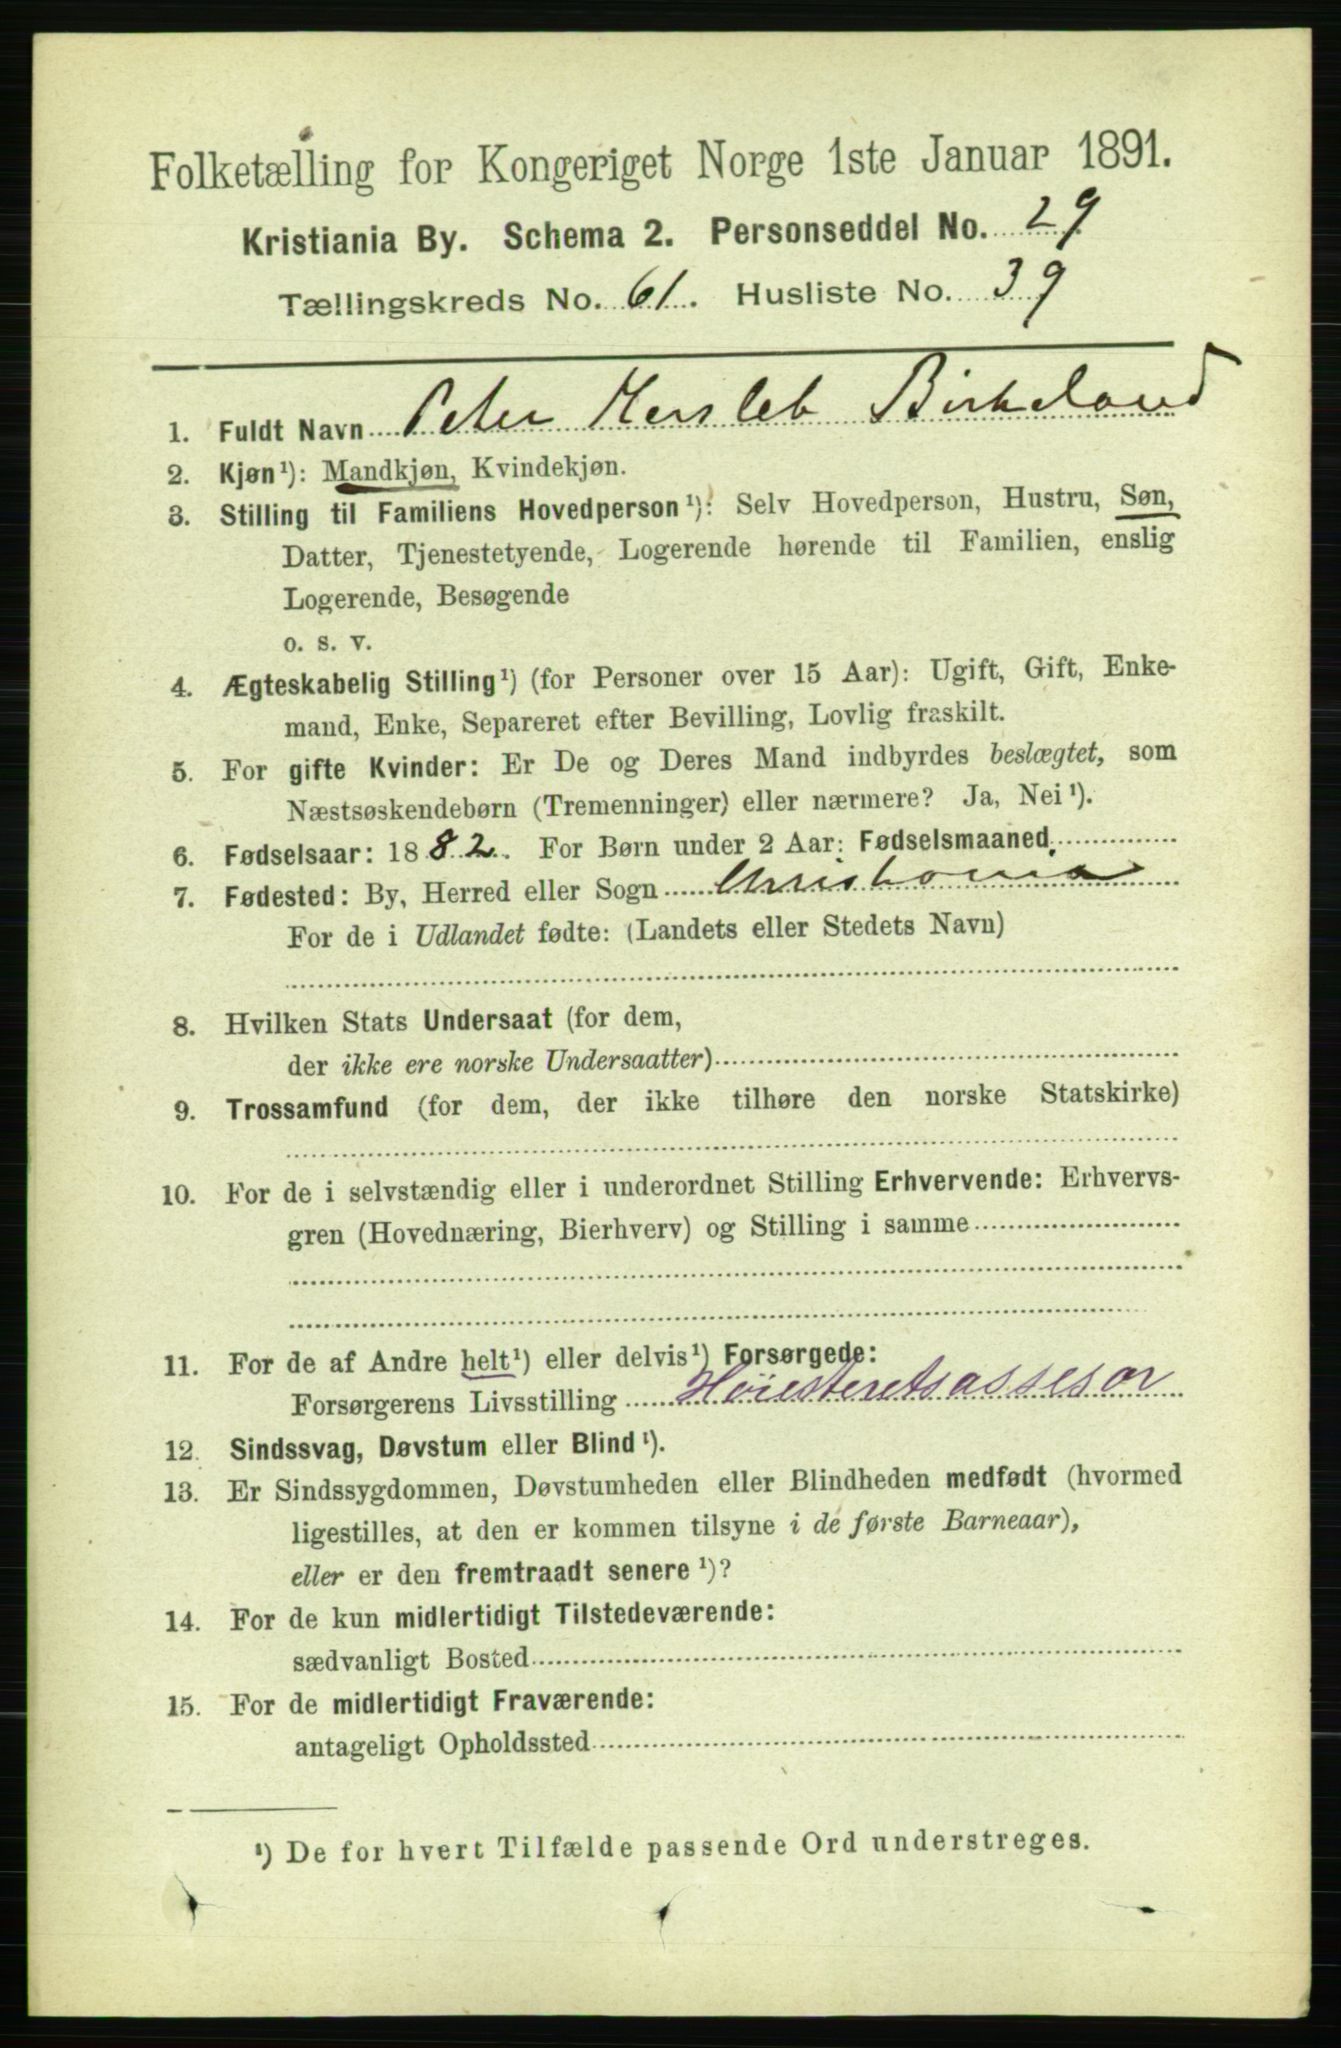 Folketælling for Kongeriget Norge 1ste Januar 1891.
Kristiania By. Schema 2. Personseddel No. 29
Tællingskreds No. 61. Husliste No. 39
1. Fuldt Navn Peter Hersleb Birkeland
2. Kjøn¹): Mandkjøn, Kvindekjøn.
3. Stilling til Familiens Hovedperson¹): Selv Hovedperson, Hustru, Søn,
Datter, Tjenestetyende, Logerende hørende til Familien, enslig
Logerende, Besøgende
o. s. v.
4. Ægteskabelig Stilling¹) (for Personer over 15 Aar): Ugift, Gift, Enke-
mand, Enke, Separeret efter Bevilling, Lovlig fraskilt.
5. For gifte Kvinder: Er De og Deres Mand indbyrdes beslægtet, som
Næstsøskendebørn (Tremenninger) eller nærmere? Ja, Nei¹).
6. Fødselsaar: 1882. For Børn under 2 Aar: Fødselsmaaned
7. Fødested: By, Herred eller Sogn Christiania
For de i Udlandet fødte: (Landets eller Stedets Navn)
8. Hvilken Stats Undersaat (for dem,
der ikke ere norske Undersaatter)
9. Trossamfund (for dem, der ikke tilhøre den norske Statskirke)
10. For de i selvstændig eller i underordnet Stilling Erhvervende: Erhvervs-
gren (Hovednæring, Bierhverv) og Stilling i samme
11. For de af Andre helt¹) eller delvis¹) Forsørgede:
Forsørgerens Livsstilling Høiesteretsassesor
12. Sindssvag, Døvstum eller Blind¹).
13. Er Sindssygdommen, Døvstumheden eller Blindheden medfødt (hvormed
ligestilles, at den er kommen tilsyne i de første Barneaar),
eller er den fremtraadt senere¹)?
14. For de kun midlertidigt Tilstedeværende:
sædvanligt Bosted
15. For de midlertidigt Fraværende:
antageligt Opholdssted
¹) De for hvert Tilfælde passende Ord understreges.